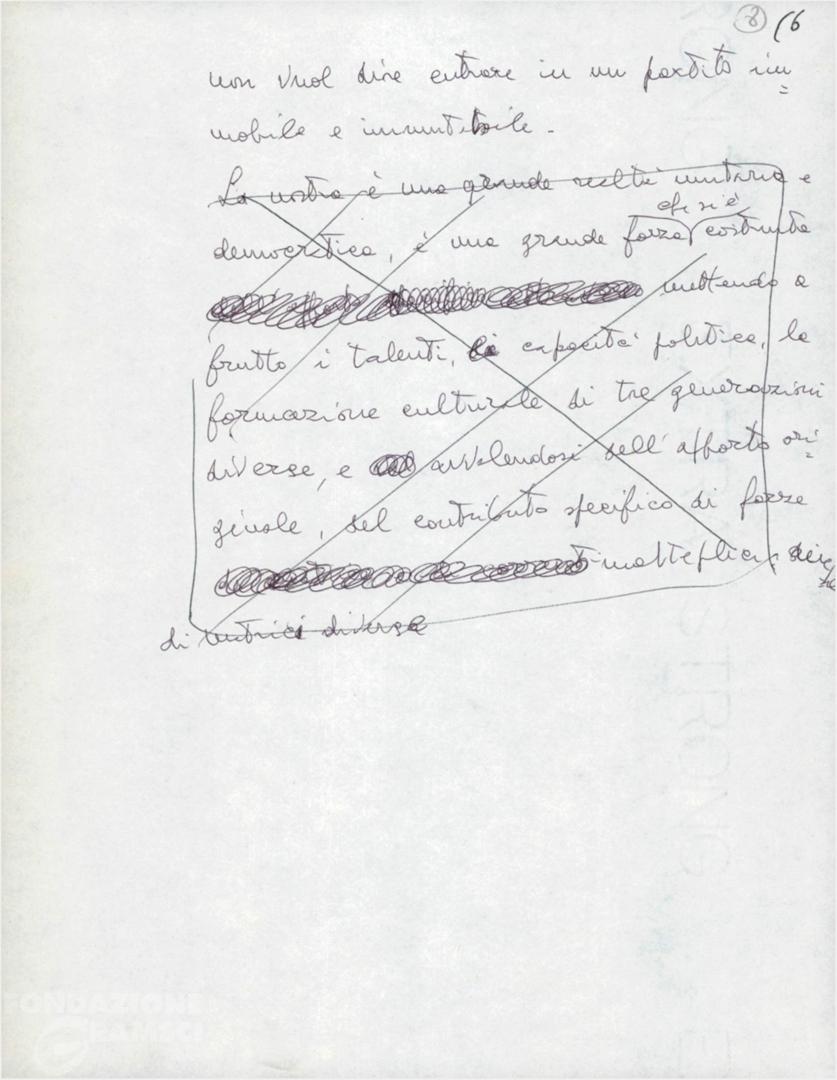 8 16
non vuol dire entrare in un partito im=
mobile e immutabile.
La nostra è una grande realtà unitaria e
che si è
democratica, è una grande forza costruita
mettendo a
frutto i talenti, le capacità politiche, la
formazione culturale di tre generazioni
diverse, e avvalendosi dell'apporto ori=
ginale, del contributo specifico di forze
molteplici,
di matrici diverse
FONDAZIONE
GRAMSCI